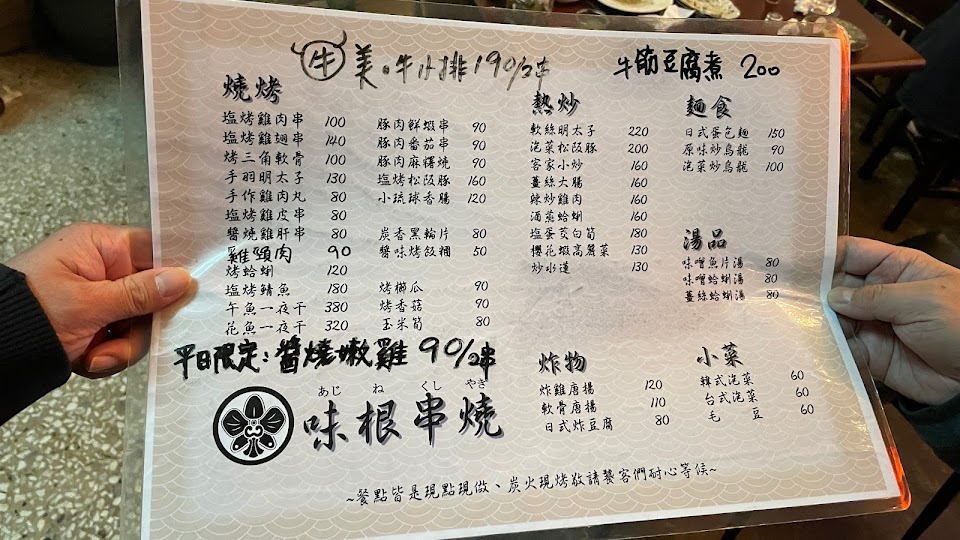 牛 美。牛小排 190/2串
牛筋豆腐煮 200
燒烤
塩烤雞肉串 100
塩烤雞翅串 140
烤三角軟骨 100
手羽明太子 130
手作雞肉丸 80
塩烤雞皮串 80
醬燒雞肝串 80
雞頸肉 90
烤蛤蜊 120
塩烤鯖魚 180
午魚一夜干 380
花魚一夜干 320
豚肉鮮蝦串 90
豚肉番茄串 90
豚肉麻糬燒 90
塩烤松阪豚 160
小琉球香腸 120
炭香黑輪片 80
醬味烤飯糰 50
烤櫛瓜 90
烤香菇 90
玉米筍 80
平日限定:醬燒嫩雞 90/2串
熱炒
軟絲明太子 220
泡菜松阪豚 200
客家小炒 160
薑絲大腸 160
辣炒雞肉 160
酒蒸蛤蜊 160
塩蛋茭白筍 180
櫻花蝦高麗菜 130
炒水蓮 130
麵食
日式蛋包麵 150
原味炒烏龍 90
泡菜炒烏龍 100
湯品
味噌魚片湯 80
味噌蛤蜊湯 80
薑絲蛤蜊湯 80
炸物
炸雞唐揚 120
軟骨唐揚 110
日式炸豆腐 80
小菜
韓式泡菜 60
台式泡菜 60
毛豆 60
あじ ね くし やき
味根串燒
~餐點皆是現點現做、炭火現烤敬請饕客們耐心等候~